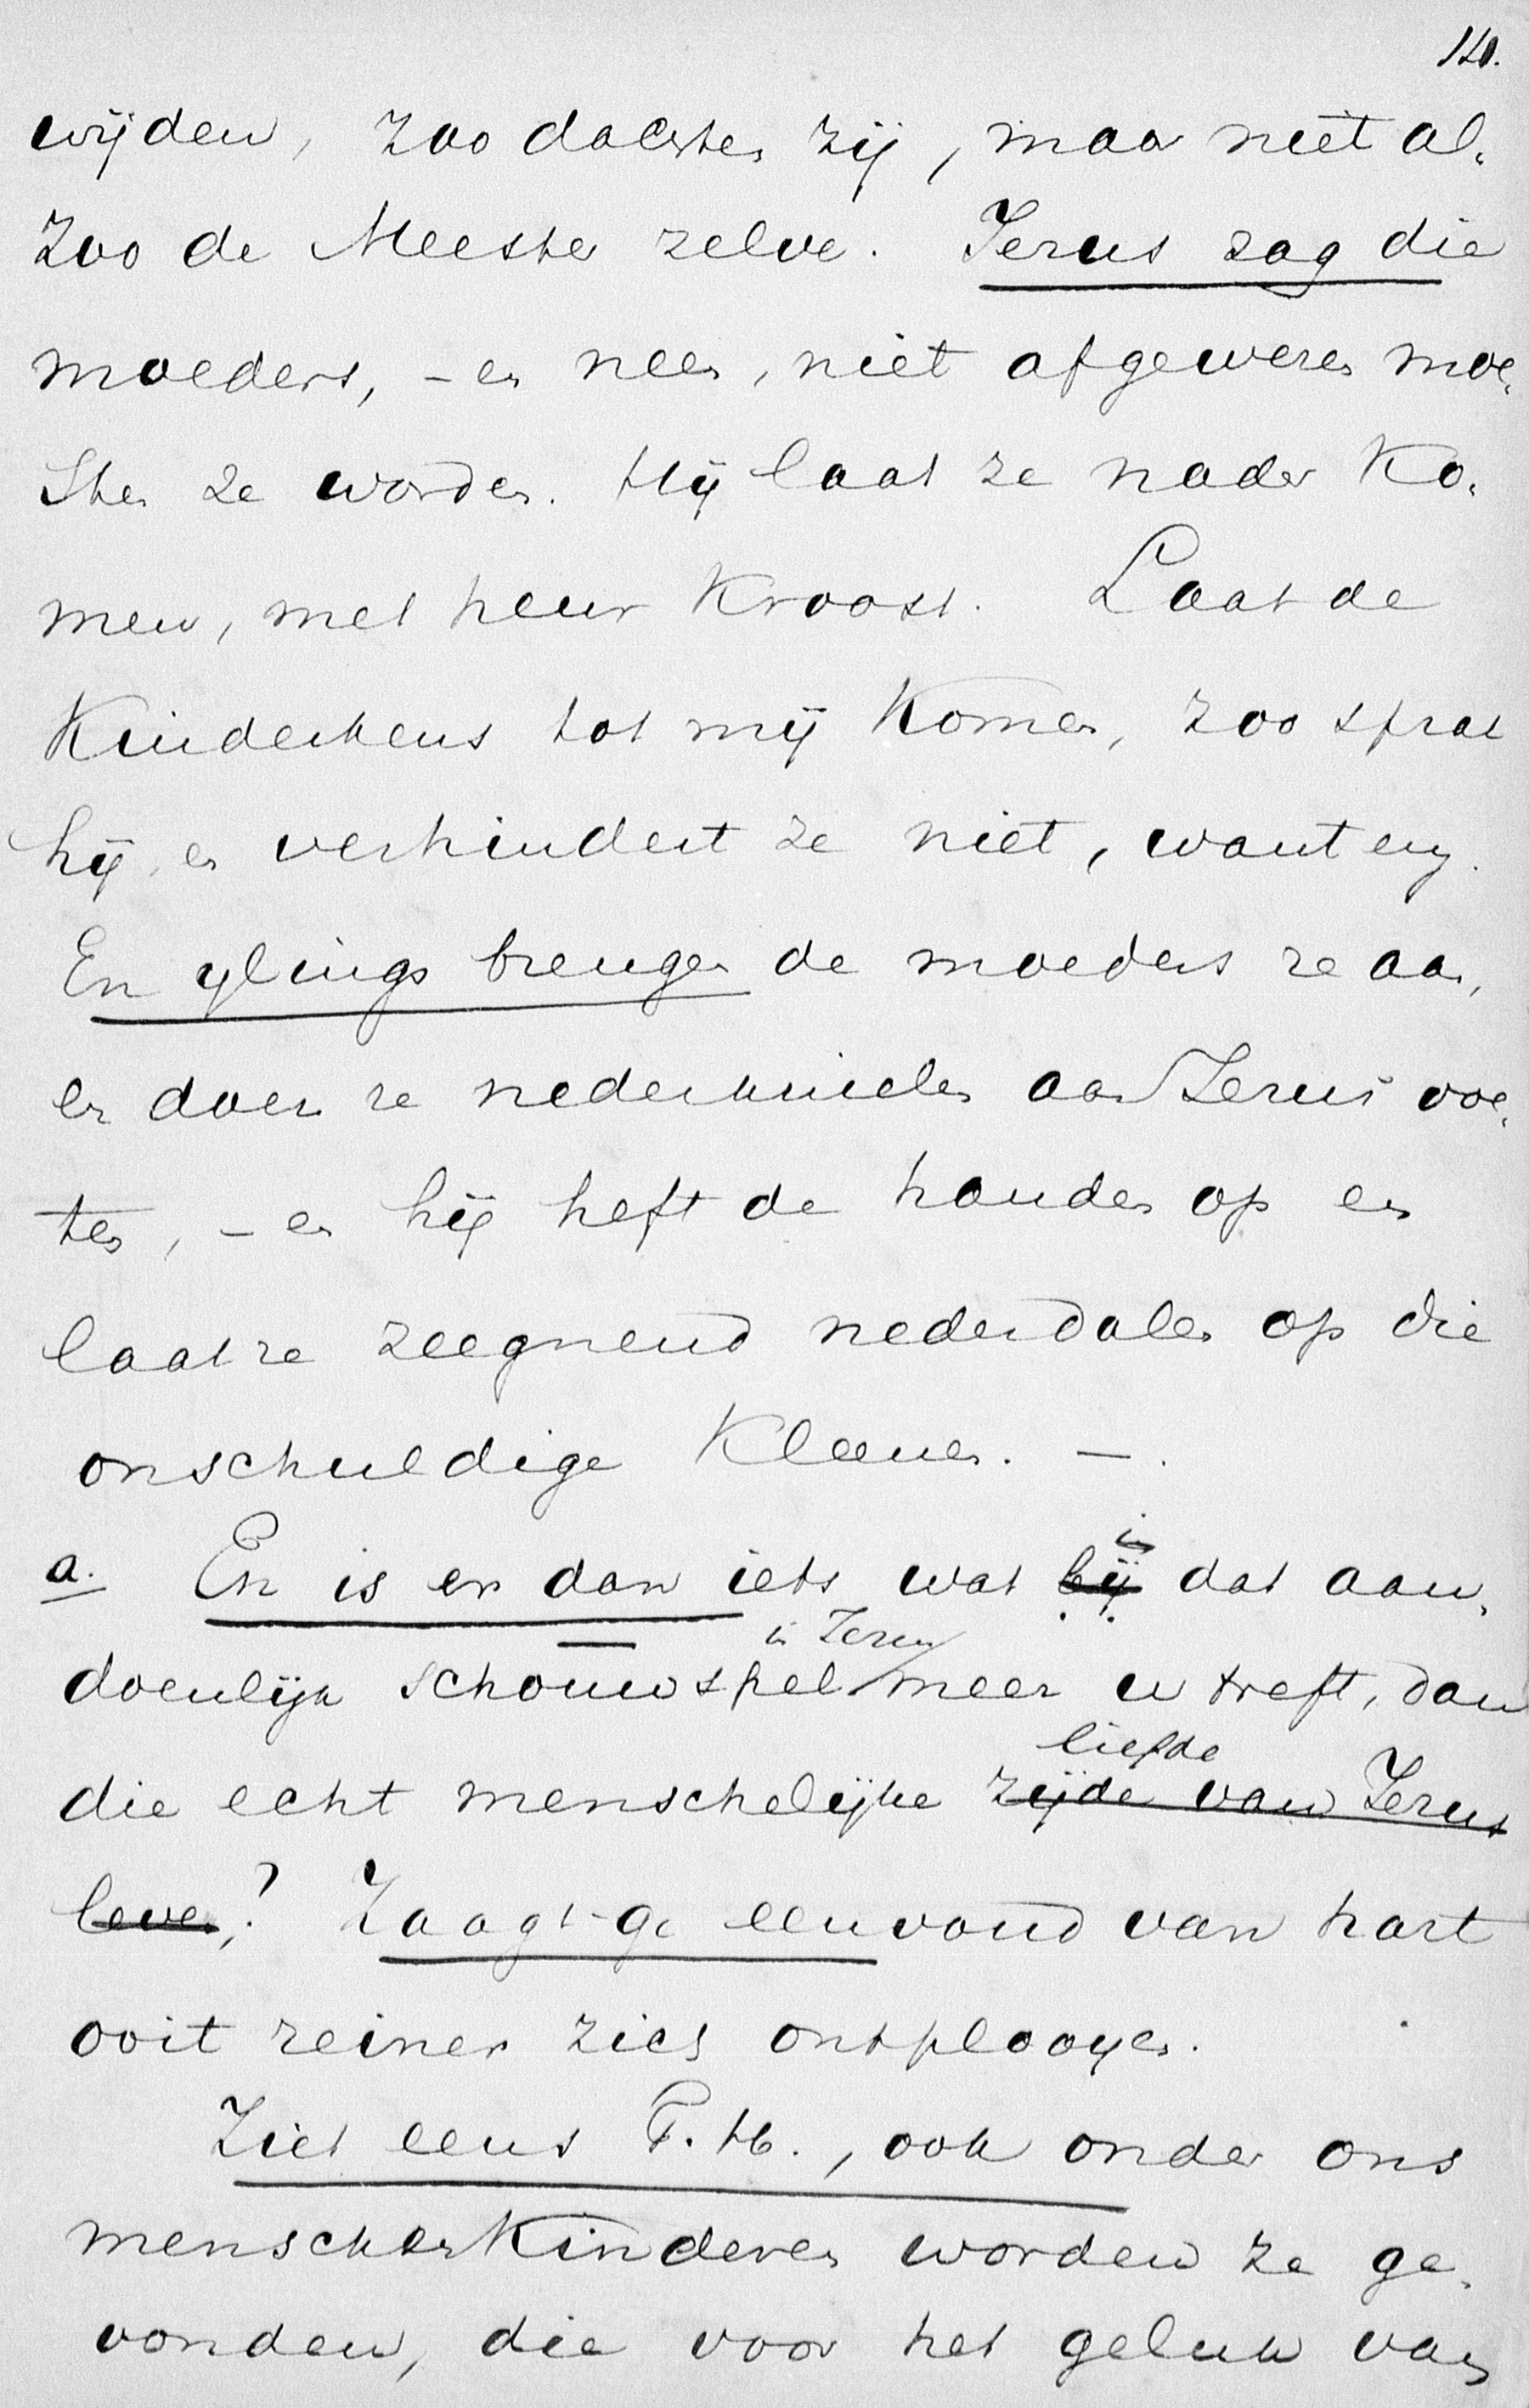 wijden, zoo dachten zij, maar niet al-
zoo de Meester zelve. Jezus zag die
moeders, – en neen, niet afgewezen moe-
sten ze worden. Hij laat ze nader ko-
men, met heur kroost. Laat de
Kinderkens tot mij komen, zoo sprak
hij, en verhindert ze niet, want enz.
En ylings brengen de moeders ze aan,
en doen ze nederknielen aan Jezus voe-
ten, – en hij heft de handen op en
laat ze zeegnend nederdalen op die
onschuldige Kleenen. –.
a. En is er dan iets wat bij in dat aan-
doenlijk schouwspel in Jezus meer u treft, dan
die echt menschelijke zijde van Jezus liefde
leven? Zaagt-ge eenvoud van hart
ooit reiner zich ontplooyen.
Ziet eens G. H., ook onder ons
menschenkinderen worden ze ge-
vonden, die voor het geluk van